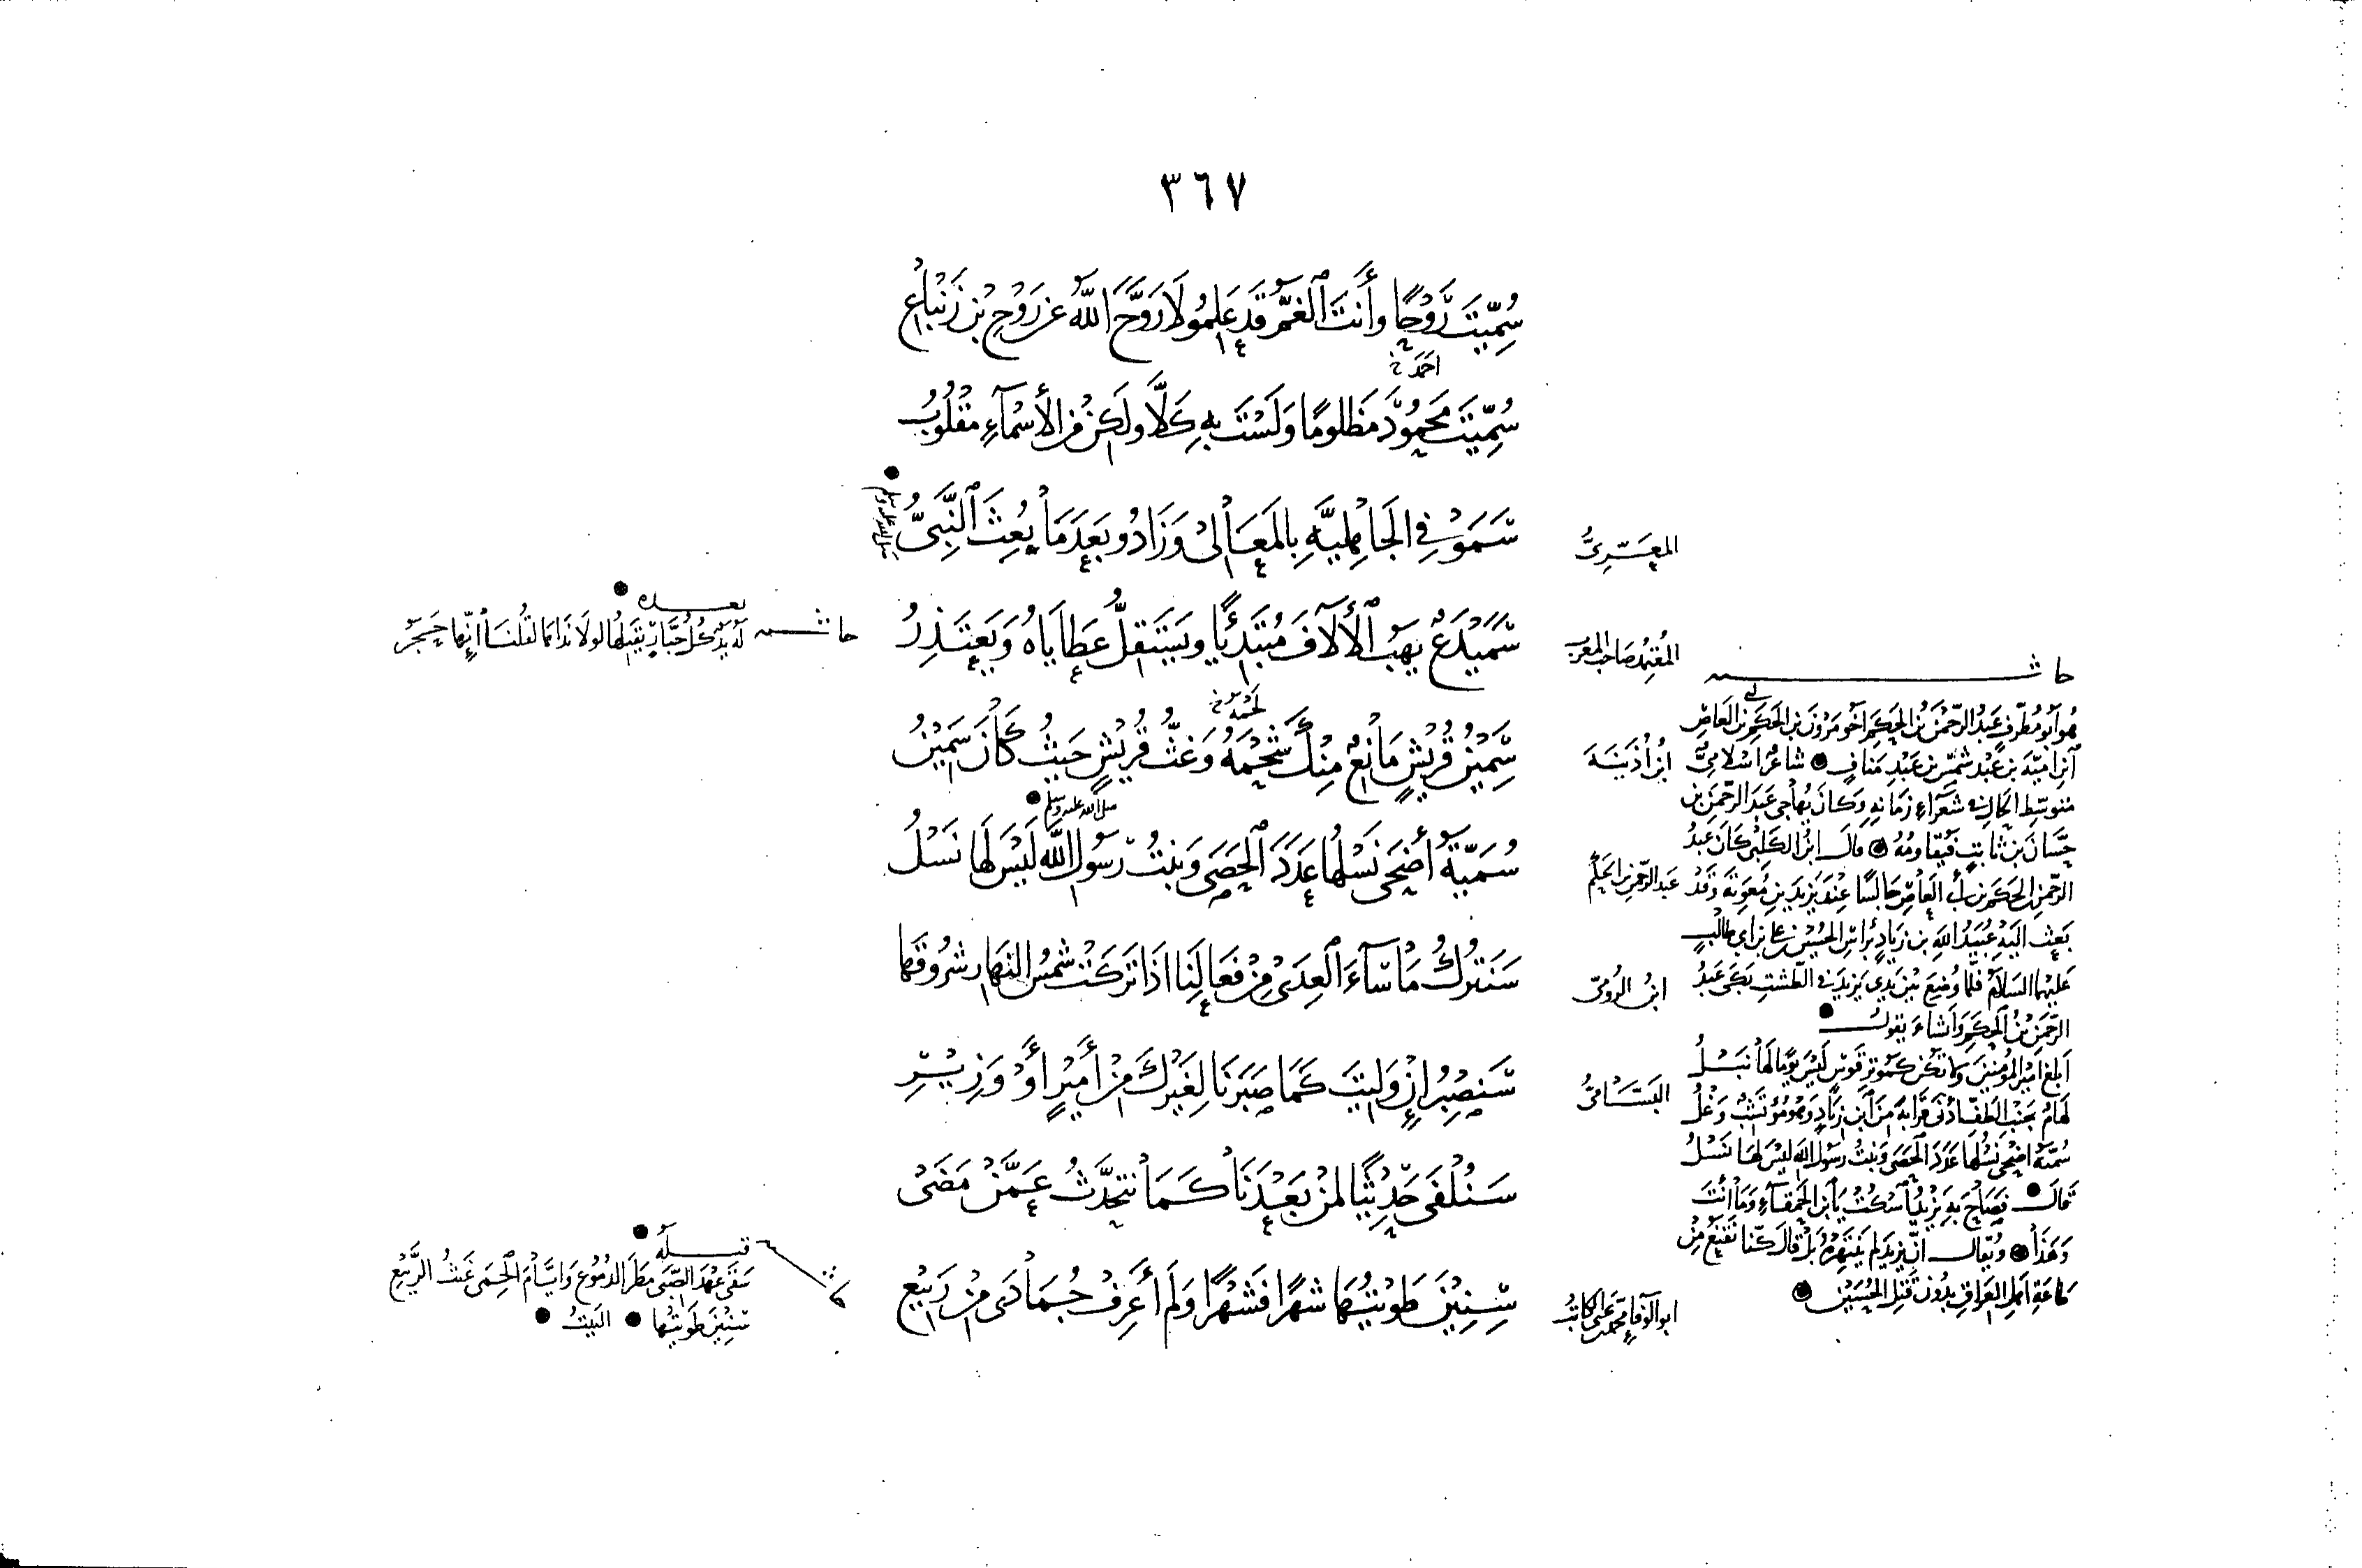 ٣٦٧
سُمِّيتَ رَوْحًا وأَنتَ الغَمُّ قَد عَلِمُوا لَا رَوَّحَ اللّٰهُ عن رَوْحِ بْنِ زَنْبَاعِ
أحمد خ
سُمِّيتَ محمُودَ مَظلومًا وَلَسْتَ بِهِ كَلَّا ولَكِنْ مِن الأَسْمَآءِ مَقْلُوبُ
المعَرِّىُّ
سَمَوْ فِي الجَاهِلِيَّةِ بِالمَعَالىْ وَزَادُو بَعدَ مَا بُعِثَ النَّبِىُّ
صلى الله عليه وسلم
المُعْتَمِدُ صَاحب المغرب
سَمَيْدَعٌ يَهَبُ الأُلَآفَ مُبْتَدِئًا ويَسْتَقِلُّ عَطَايَاهُ وَيَعتَذِرُ
حاشـــية
بعـــده
لَهُ يَدٌ كُلُّ جَبَّارٍ يُقَبِّلُهَا لولَا نَداهَا لقُلنَا إنّها حَجَرُ
لحمه خ
ابنُ أُذَيْنَةَ
سَمِيْنُ قُرَيْشٍ مَانِعٌ مِنْكَ شَحْمَهُ وَغَثُّ قُرَيْشٍ حَيثُ كَانَ سَمِيْنُ
صلى الله عليه وسلم
عبد الرحمن بن الحكم
سُمَيَّةُ أَضحَى نَسْلُهَا عَدَدَ الحَصَى وَبنْتُ رسُولِ اللّٰه لَيْسَ لَهَا نَسْلُ
ابنُ الرُومىّ
سَنَتْرُكُ مَا سَآءَ العِدَى مِنْ فَعَالِنَا اذَا تَرَكَتْ شَمْسُ النهَار شرُوقَهَا
البَسَّامىُّ
سَنَصْبِرُ إنْ وَلِيتَ كَمَا صَبَرْنَا لِغَيْرِكَ مِنْ أَمِيْرٍ أوْ وَزِيْرِ
سَنُلْفَى حَدِيْثًا لمنْ بَعْدَنَا كَمَا نتحَدَّثُ عَمَّنْ مَضَىْ
ابو الوَفاءِ محمّد بن على الكاتبُ
سِنِيْنَ طَوَيْتُهَا شهرًا فَشَهْرًا وَلَم أعرِفْ جُمَادَى مِنْ رَبِيْعِ
قبـــله
سَقَى عَهْدَ الصِّبَى مَطَرُ الدمُوْعِ وَايَّامَ الحِمَى غَيْثُ الرَّبِيْعِ
سِنِيْنَ طَوَيْتُهَا البَيْتُ
حاشـــية
هُو أبُو مُطَرِّفٍ عَبْدُ الرّحْمٰن بْنُ الحَكَم اخُو مَرْوَنَ بن الحَكَم بن أبي العَاصِ
ابن اميَّة بن عَبْد شَمْسِ بن عَبْدِ مَنَافٍ شاعرٌ اسْلامِىٌّ
مُتوسِّط الحَالِ في شعَرَاءِ زَمَانِهِ وكَانَ يُهَاجى عَبْدَ الرّحْمٰن بن
حَسَّانَ بن ثابتٍ فيُقَاومُهُ قالَ ابنُ الكَلبْى كَانَ عبدُ
الرّحمٰن بن الحكَم بن أبي العَاصِ جَالسًا عِنْدَ يَزيْدَ بن مُعوِيَةَ وَقَدْ
بَعثَ اليْهِ عُبَيْدُ اللهِ بن زيَادٍ برَأسِ الحُسَيْن بن على بن ابي طَالبٍ
عَليْهما السَلَامُ فلمّا وُضِعَ بَيْنَ يَدى يَزيْدَ في الطّشْتِ بَكَى عَبدُ
الرّحْمٰن بْنُ الحكَم وَانشَاءَ يقولُ
ابلغْ أميْرَ المؤْمِنيْنَ ولا تكُنْ كَمُوْتِرِ قَوْسٍ لَيْسَ يَوْمًا لَهَا نَبْلُ
لَهَامٌ بجَنْبِ الطَفِّ ادْنى قَرَابَةً مِنَ ابنِ زيَادٍ
سُمَيَّةُ أضْحَى نسْلُهَا عَدَدَ الحَصَى وَبنْتُ رسُولِ الله ليْسَ لهَا نَسْلُ
قالَ فصَاحَ بهِ يَزيْدُ اسْكُتْ يَا ابْنَ الحمْقَاءِ وَمَا أنْتَ
وَهَذَا وَيقالُ انّ يزيْدَ لم يَنْتَهِرْهُ بَلْ قالَ كنّا نَقْنَعُ مِنْ
طاعَةِ أهلِ العرَاقِ بدُونِ قَتلِ الحُسَيْنِ